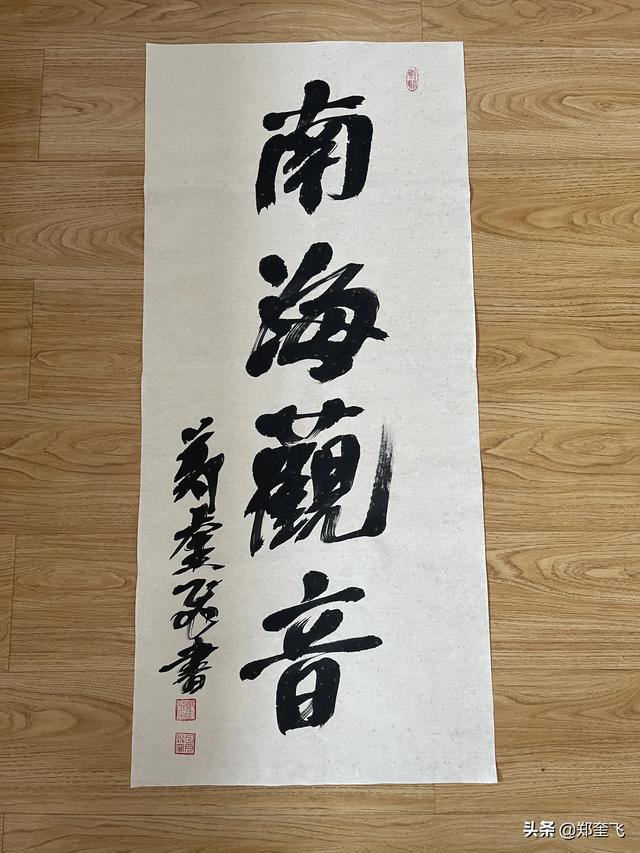 南海觀音
郑奎飞書
头条 @郑奎飞